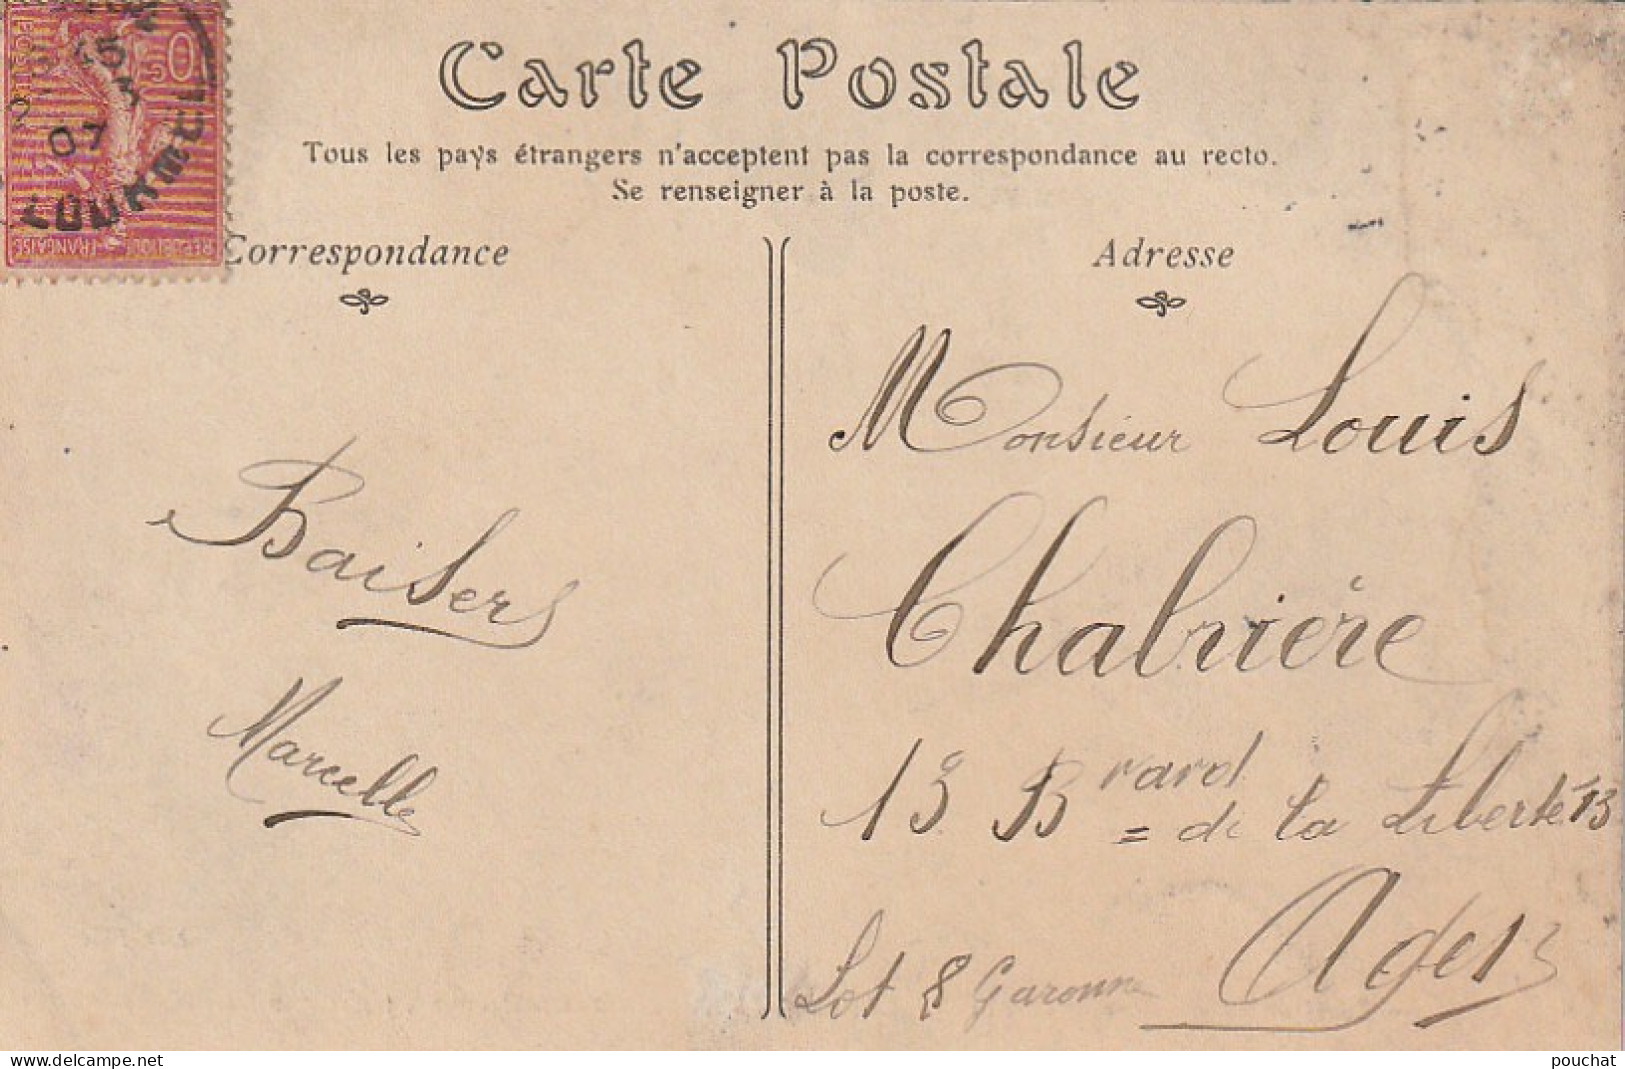 Carte Postale
Tous les pays étrangers n'acceptent pas la correspondance au recto.
Se renseigner à la poste.
Correspondance
Adresse
Baisers
Marcelle
Monsieur Louis
Chalrière
13 Bvard de la Liberté 13
Agen
Lot & Garonne
POSTES
50
REPUBLIQUE FRANÇAISE
15
3
07
pouchat